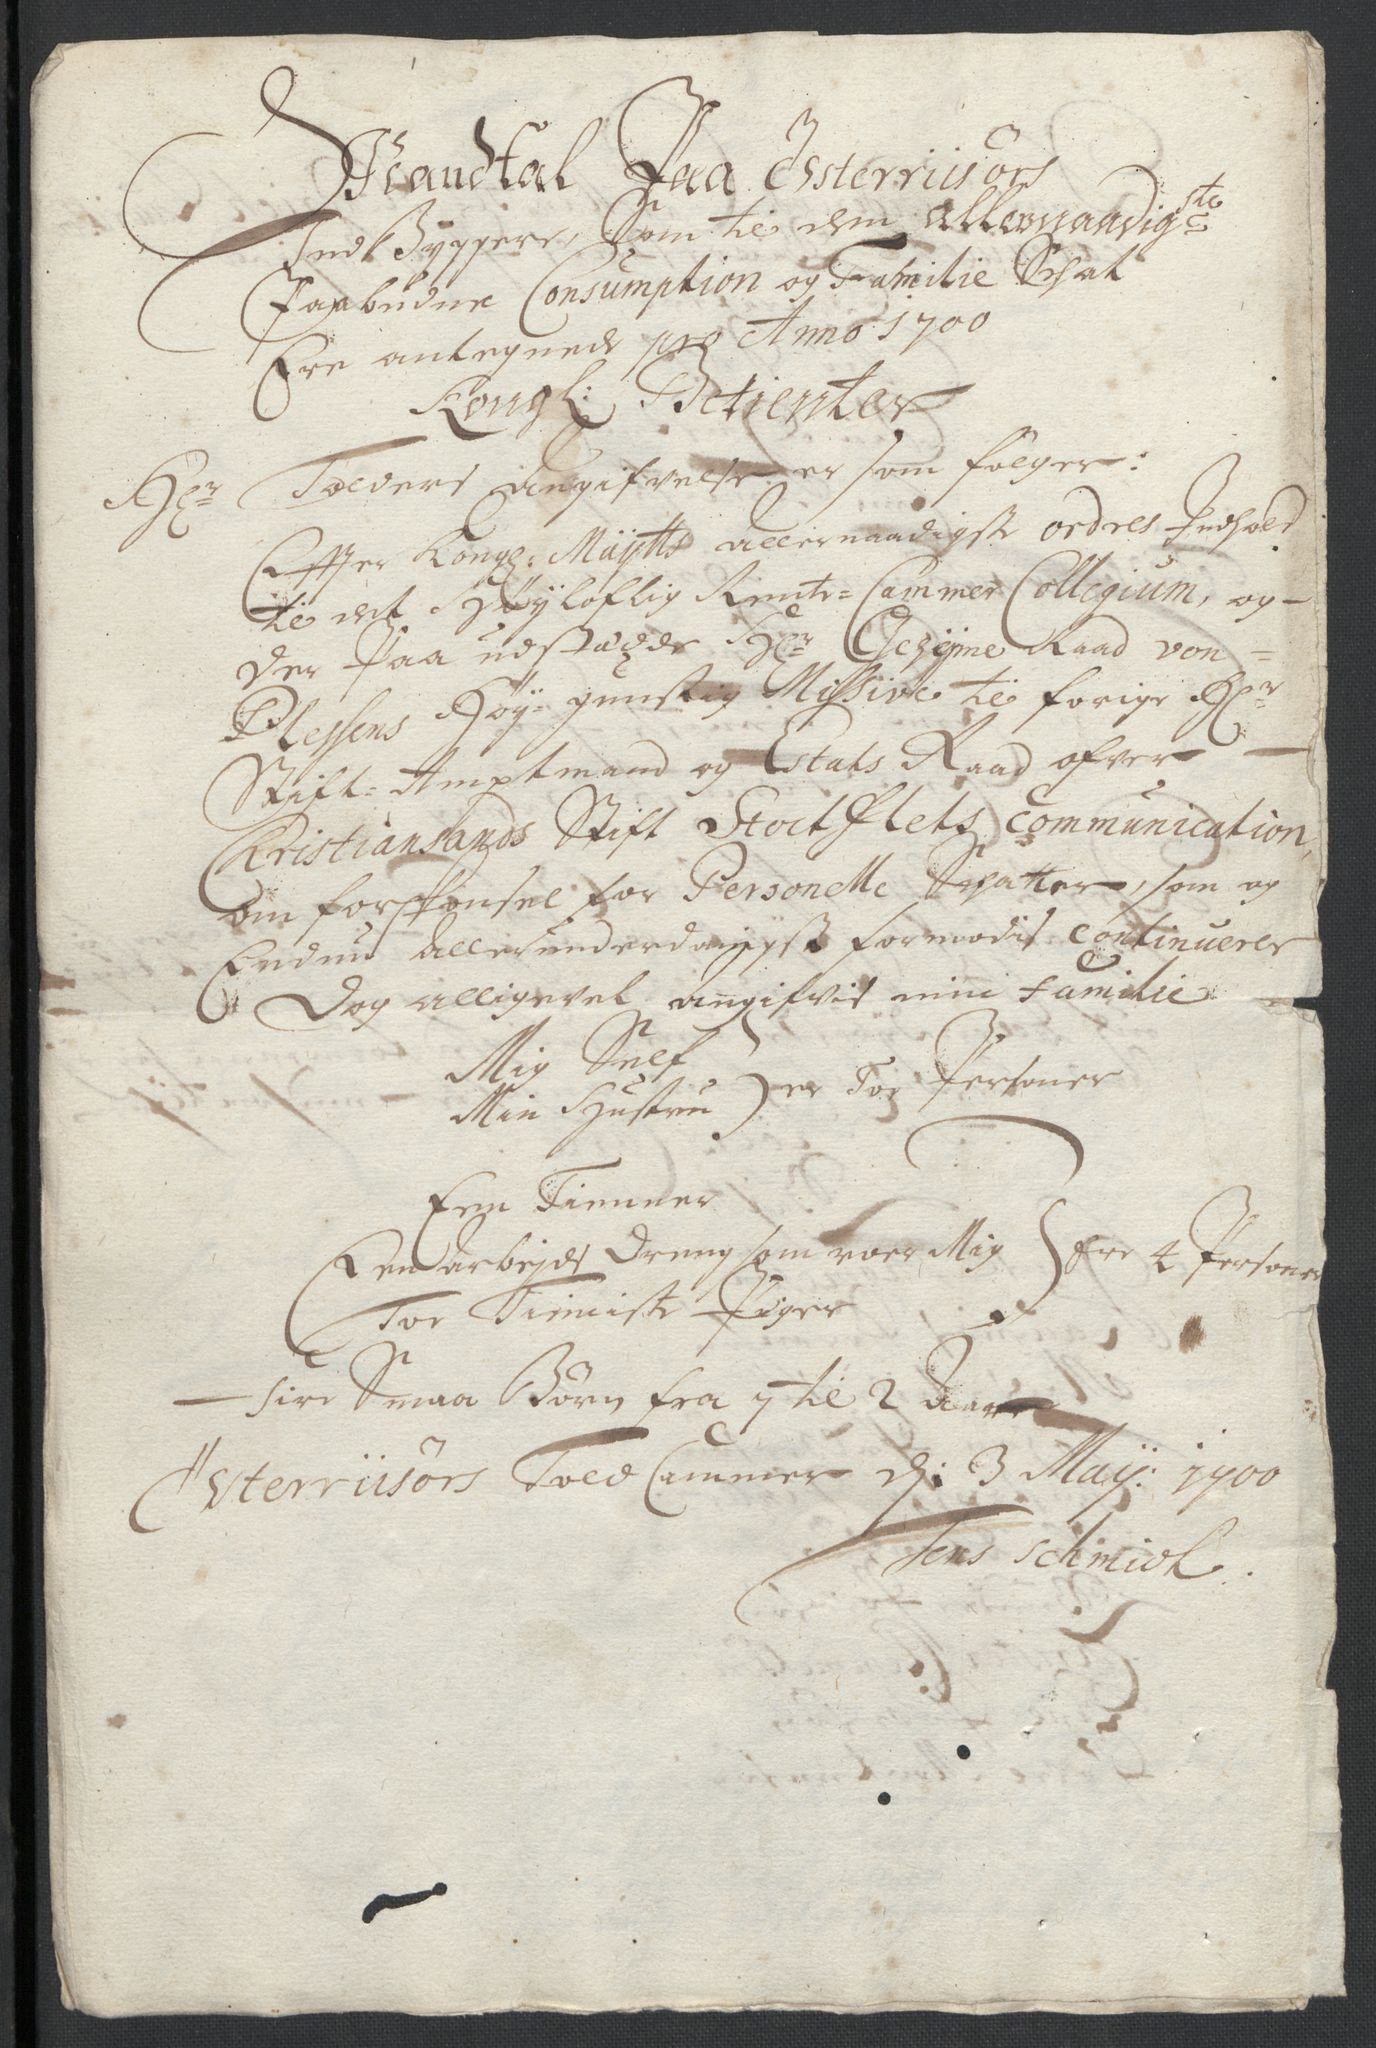 Mandtal Paa Østerriisörs
Indbyggere, Som til dem allernaadigste
Paabudne Consumption og Familie Schat
Ere antegnede pro Anno 1700
Kongl: Betienter
Hr Tolders Angifvelse er som følger:
Effter Kongl: Maÿtts allernaadigste ordres Indhold
til det Høÿloflig Rente=Cammer Collegium, og
der Paa udstædde Hr Geheime Raad von=
Plessens Høÿ-gunstig Missive til forige Hr
Stift=Amptmand og Estats Raad ofver
Christiansands Stift Stochflets communication,
om forskonsel for Personelle Schatter, som og
Endnu allerunderdanigst formodis continuerer
Dog alligevel angifvis min Familie
Mig Self
Min Hustru } er Toe Personer
Een Tienner
Een arbejds Dreng som roer Mig } Ere 4 Personer
Toe Tieniste Piger
fire Smaa Börn fra 7 til 2 Aar
Østerriisörs Told Cammer d: 3 Maÿ: 1700
Jens Schmidt